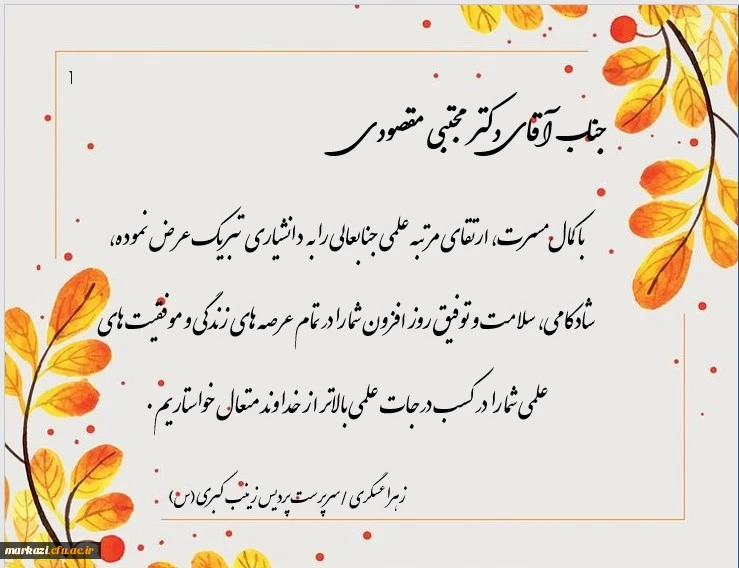 1
جناب آقای دکتر مجتبی مقصودی
با کمال مسرت، ارتقای مرتبه علمی جنابعالی را به دانشیاری تبریک عرض نموده،
شادکامی، سلامت و توفیق روز افزون شما را در تمام عرصه های زندگی و موفقیت های
علمی شما را در کسب درجات علمی بالاتر از خداوند متعال خواستاریم .
زهرا عسگری / سرپرست پردیس زینب کبری (س)
markazi.cfu.ac.ir